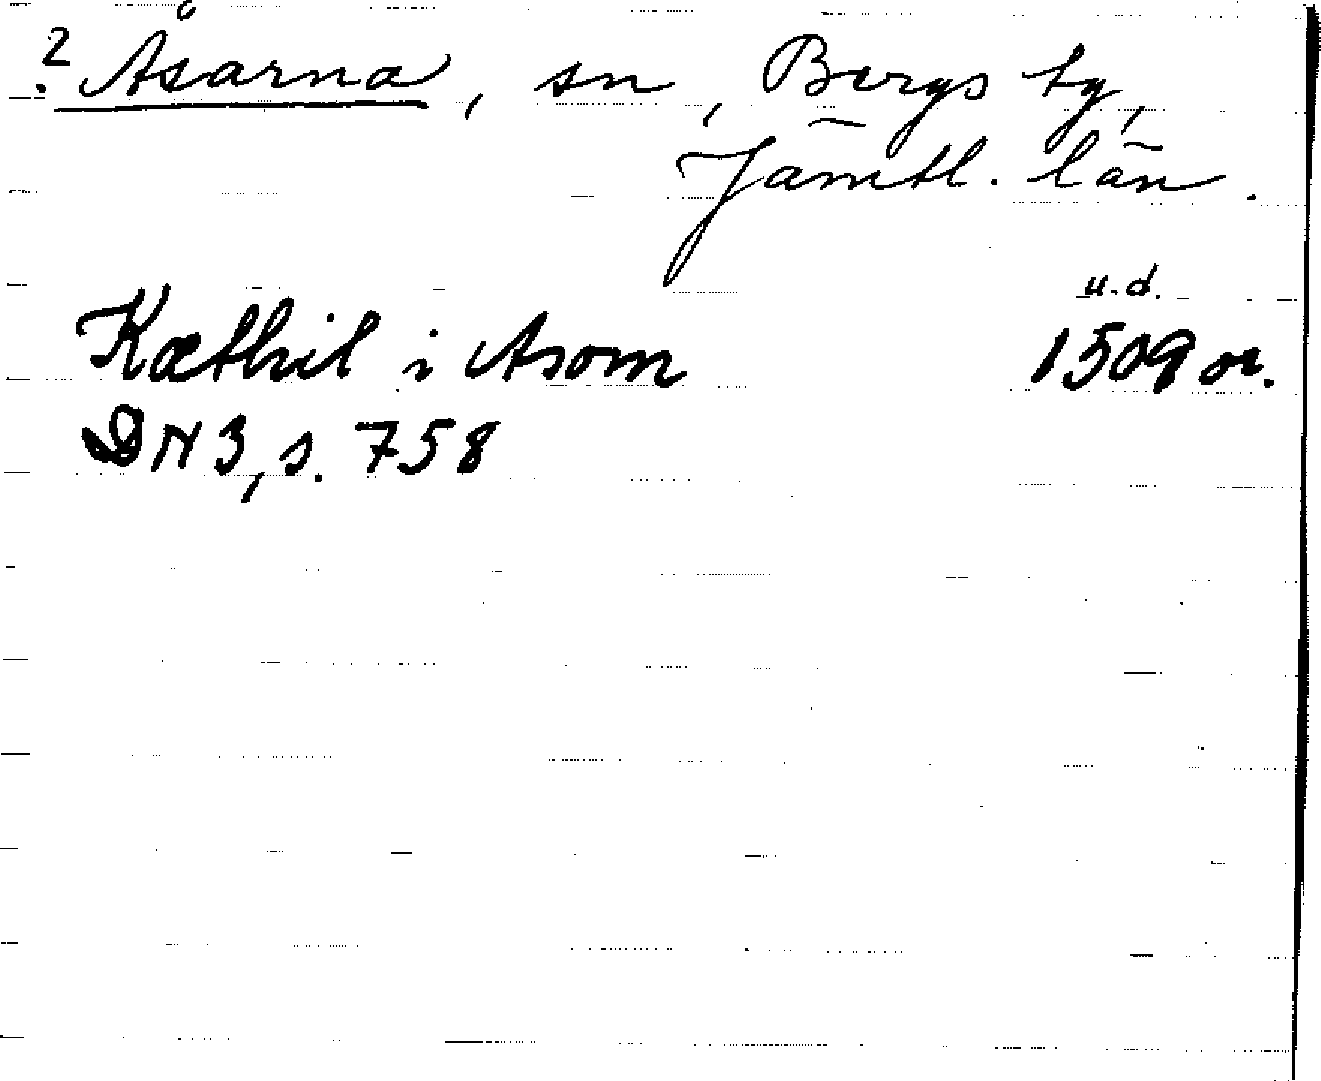 ? Åsarna, sn, Bergs tg,
Jämtl. län.
u.d.
Kæthil i Asom 1509 or.
DN 3, s. 758